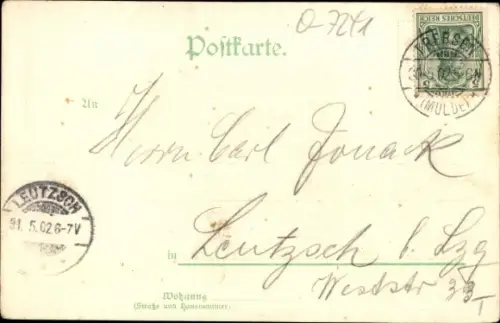 O-7241
DEUTSCHES REICH
TREBSEN
30.5.02.5-6N
(MULDE)
Postkarte.
An
Herrn Carl Jonack
LEUTZSCH
31.5.02 6-7V
in Leutzsch b. Lzg
Weststr 33 I
Wohnung
(Straße und Hausnummer)